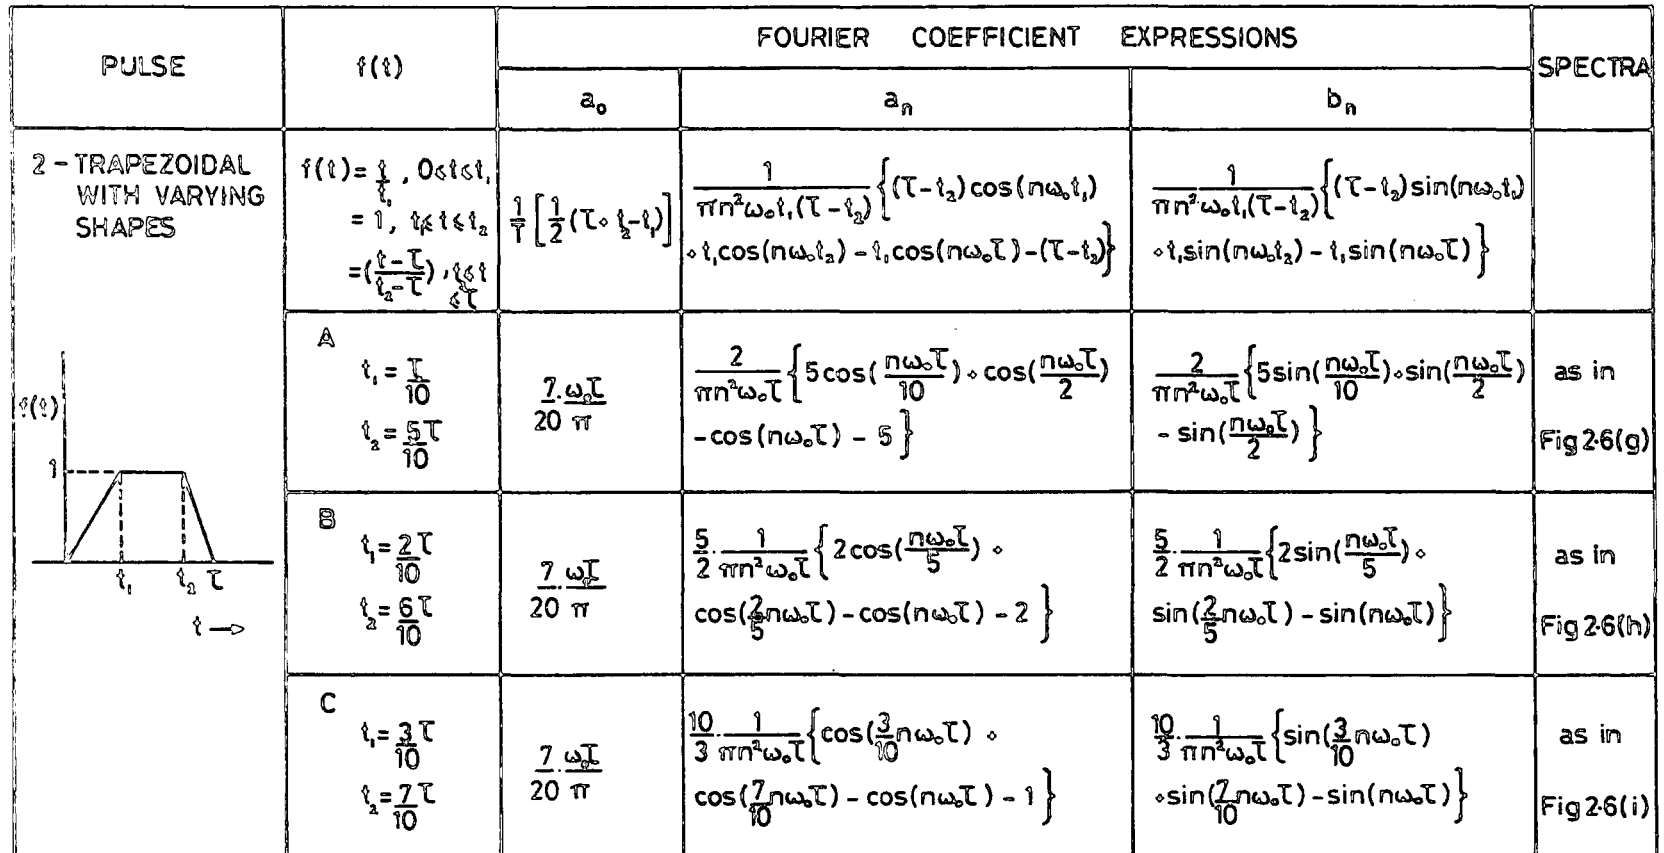 PULSE
f(t)
FOURIER COEFFICIENT EXPRESSIONS
SPECTRA
a₀
aₙ
bₙ
2 - TRAPEZOIDAL
WITH VARYING
SHAPES
f(t) = t/t₁ , 0≤t≤t₁
= 1, t₁≤t≤t₂
= ((t-τ)/(t₂-τ)), t₂≤t
≤τ
1/T [1/2 (τ+t₂-t₁)]
1/(πn²ω₀t₁(τ-t₂)) {(τ-t₂)cos(nω₀t₁)
+t₁cos(nω₀t₂) - t₁cos(nω₀τ) - (τ-t₂)}
1/(πn²ω₀t₁(τ-t₂)) {(τ-t₂)sin(nω₀t₁)
+t₁sin(nω₀t₂) - t₁sin(nω₀τ)}
f(t)
1
t₁ t₂ τ
t →
A
t₁ = τ/10
t₂ = 5τ/10
7/20 . ω₀τ/π
2/(πn²ω₀τ) {5cos(nω₀τ/10) + cos(nω₀τ/2)
-cos(nω₀τ) - 5}
2/(πn²ω₀τ) {5sin(nω₀τ/10) + sin(nω₀τ/2)
- sin(nω₀τ/2)}
as in
Fig 2·6(g)
B
t₁ = 2/10 τ
t₂ = 6/10 τ
7/20 . ω₀τ/π
5/2 . 1/(πn²ω₀τ) {2cos(nω₀τ/5) +
cos(2/5 nω₀τ) - cos(nω₀τ) - 2}
5/2 . 1/(πn²ω₀τ) {2sin(nω₀τ/5) +
sin(2/5 nω₀τ) - sin(nω₀τ)}
as in
Fig 2·6(h)
C
t₁ = 3/10 τ
t₂ = 7/10 τ
7/20 . ω₀τ/π
10/3 . 1/(πn²ω₀τ) {cos(3/10 nω₀τ) +
cos(7/10 nω₀τ) - cos(nω₀τ) - 1}
10/3 . 1/(πn²ω₀τ) {sin(3/10 nω₀τ)
+sin(7/10 nω₀τ) - sin(nω₀τ)}
as in
Fig 2·6(i)